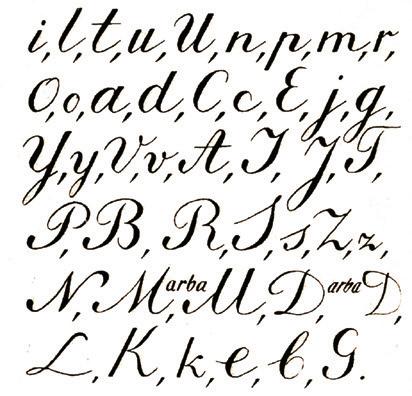 i, l, t, u, U, n, p, m, r,
O, o, a, d, C, c, E, j, g,
Y, y, V, v, A, I, J, T,
P, B, R, S, s, Z, z,
N, M arba M, D arba D,
L, K, k, e, b, G.